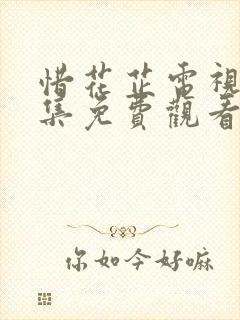 惜花芷電視
集免費觀看
你如今好嘛